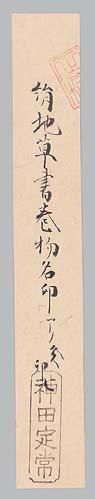 絹地草書巻物名印アリ
神田定常